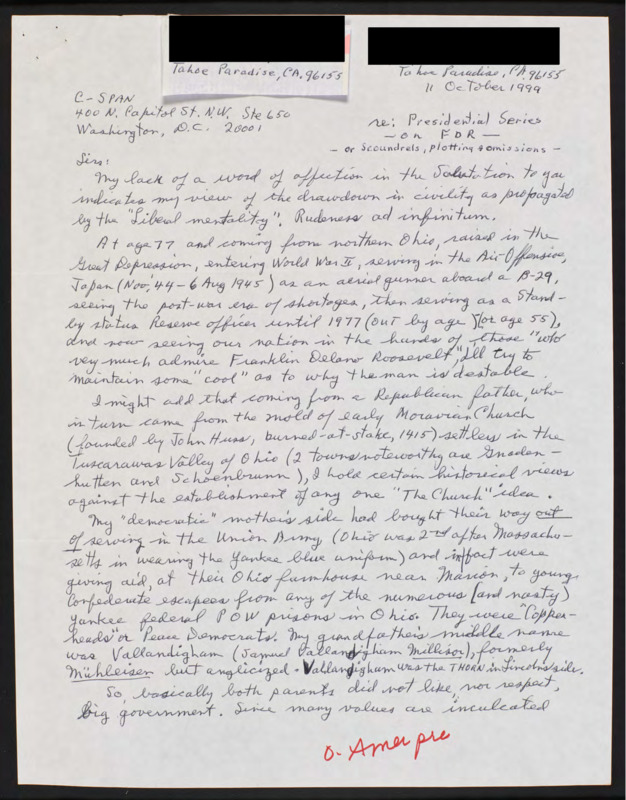 Tahoe Paradise, CA. 96155
Tahoe Paradise, CA. 96155
11 October 1999
C-SPAN
400 N. Capitol St. N.W. Ste 650
Washington, D.C. 20001
re: Presidential Series
- on FDR -
- or Scoundrels, plotting & omissions -
Sirs:
My lack of a word of affection in the Salutation to you
indicates my view of the drawdown in civility as propagated
by the "Liberal mentality". Rudeness ad infinitum.
At age 77 and coming from northern Ohio, raised in the
Great Depression, entering World War II, serving in the Air Offensive,
Japan (Nov, 44 - 6 Aug 1945) as an aerial gunner aboard a B-29,
seeing the post-war era of shortages, then serving as a Stand-
by status Reserve officer until 1977 (out by age) (or age 55),
and now seeing our nation in the hands of those "who
very much admire Franklin Delano Roosevelt", I'll try to
maintain some "cool" as to why the man is destable.
I might add that coming from a Republican father, who
in turn came from the mold of early Moravian Church
(founded by John Huss, burned-at-stake, 1415) settlers in the
Tuscarawas Valley of Ohio (2 towns noteworthy are Gnaden-
hutten and Schoenbrunn), I hold certain historical views
against the establishment of any one "The Church" idea.
My "democratic" mother's side had bought their way out
of serving in the Union Army (Ohio was 2nd after Massachu-
setts in wearing the Yankee blue uniform) and in fact were
giving aid, at their Ohio farmhouse near Marion, to young
Confederate escapees from any of the numerous [and nasty)
Yankee federal POW prisons in Ohio. They were "Copper-
heads" or Peace Democrats. My grandfather's middle name
was Vallandigham (Samuel Vallandigham Millisor), formerly
Mühleisen but anglicized. Vallandigham was the THORN in Lincoln's side.
So, basically both parents did not like, nor respect,
big government. Since many values are inculcated
O. Amer pre